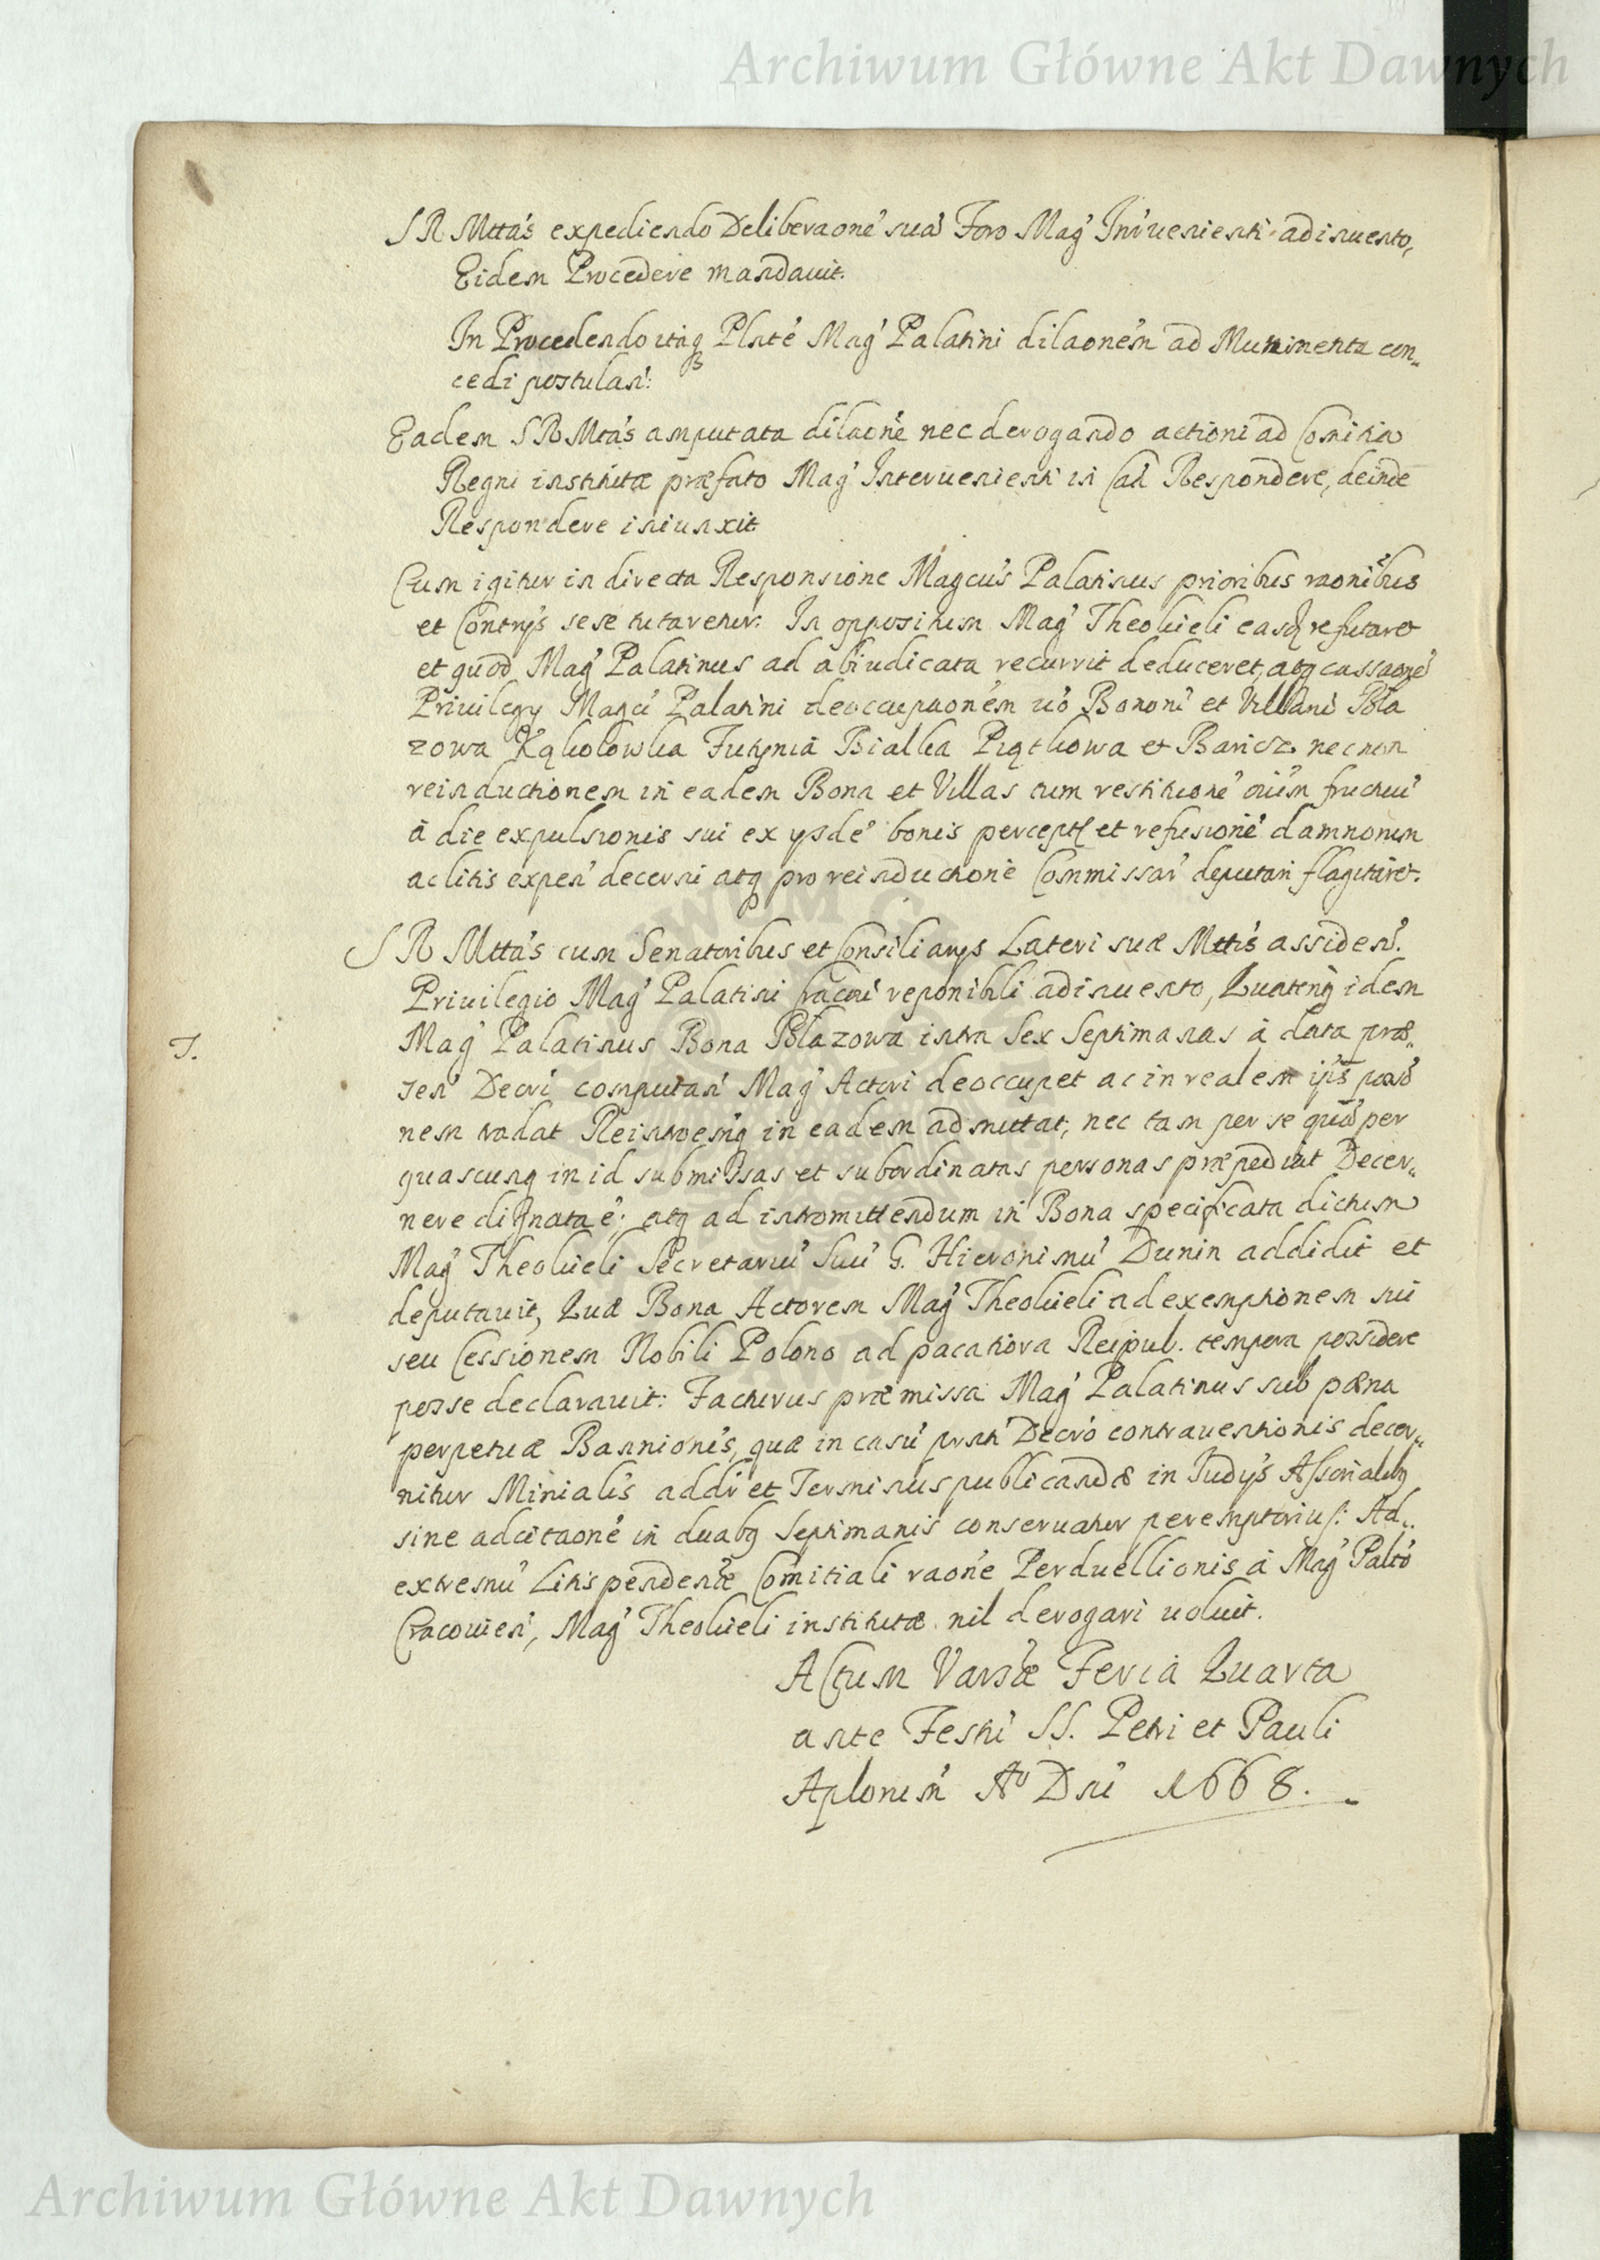 Archiwum Główne Akt Dawnych
S R Mttás expediendo Deliberaoné suá Foro Mag̃ Inẽruenienti adinuento,
Eidem Procedere mandauit.
In Procedendo itaq Plnté Mag̃ Palatini dilaoném ad Munimenta con„
cedi postulan̄:
Eadem S R Mtás amputata dilaoné nec derogando actioni ad Comitia
Regni institutæ præfato Mag̃ Interuenienti in Cā Respondere, deinde
Respondere iniunxit
Cum igitur in directa Responsione Magcus Palatinus prioribus raonibus
et Contrys sese tutaretur: In oppositum Mag̃ Theolueli easq refutaret
et quod Mag̃ Palatinus ad abiudicata recurrit deduceret, atq cassaoné
Priuilegy Magci Palatini deoccupaoném uó Bonoru᷄ et Villaru᷄ Bla
zowa Kąkolowka Futynia Bialka Piątkowa et Baricz necnon
reinductionem in eadem Bona et Villas cum restitutioné oium fructuu᷄
á die expulsionis sui ex ysdé bonis percept et refusioné damnorum
ac litis expen̄ decerni atq pro reinductioné Commissar̄ deputari flagitaret.
S R Mttás cum Senatoribus et Consiliarys Lateri suæ Mttis assiden̄.
Priuilegio Mag̃ Palatini Cracou᷄ reponibili adinuento, Quatenq idem
T.
Mag̃ Palatinus Bona Blazowa intra Sex Septimanas á data præ„
sen̄ Decri computan̄ Mag̃ Actori deoccupet ac in realem ips possō
nem tradat Reintroenq in eadem admittat, nec tam per se quā per
quascunq in id submissas et subordinatas personas præpediat Decer„
nere dignata é; atq ad intromittendum in Bona specificata dictum
Mag̃ Theolueli Secretariu᷄ Suu᷄ G. Hieronimu᷄ Dunin addidit et
deputauit, Quæ Bona Actorem Mag̃ Theolueli ad exemptionem sui
seu Cessionem Nobili Polono ad pacatiora Reipub. tempora possidere
posse declarauit: Facturus præmissa Mag̃ Palatinus sub pæna
perpetuæ Bannionis, quæ in casu᷄ prsnti Decró contrauentionis decer„
nitur Minialis addr et Terminus publicandæ in Iudys Assorialibq
sine adcitaoné in duabq Septimanis conseruatur peremptorius: Ad„
extremu᷄ Litispendentiæ Comitiali raoné Perduellionis á Mag̃ Palto
Cracouien̄, Mag̃ Theolueli institutæ nil derogari uoluit.
Actum Varsæ Feria Quarta
ante Festu᷄ SS. Petri et Pauli
Aplorum Aº Dni 1668.
Archiwum Główne Akt Dawnych